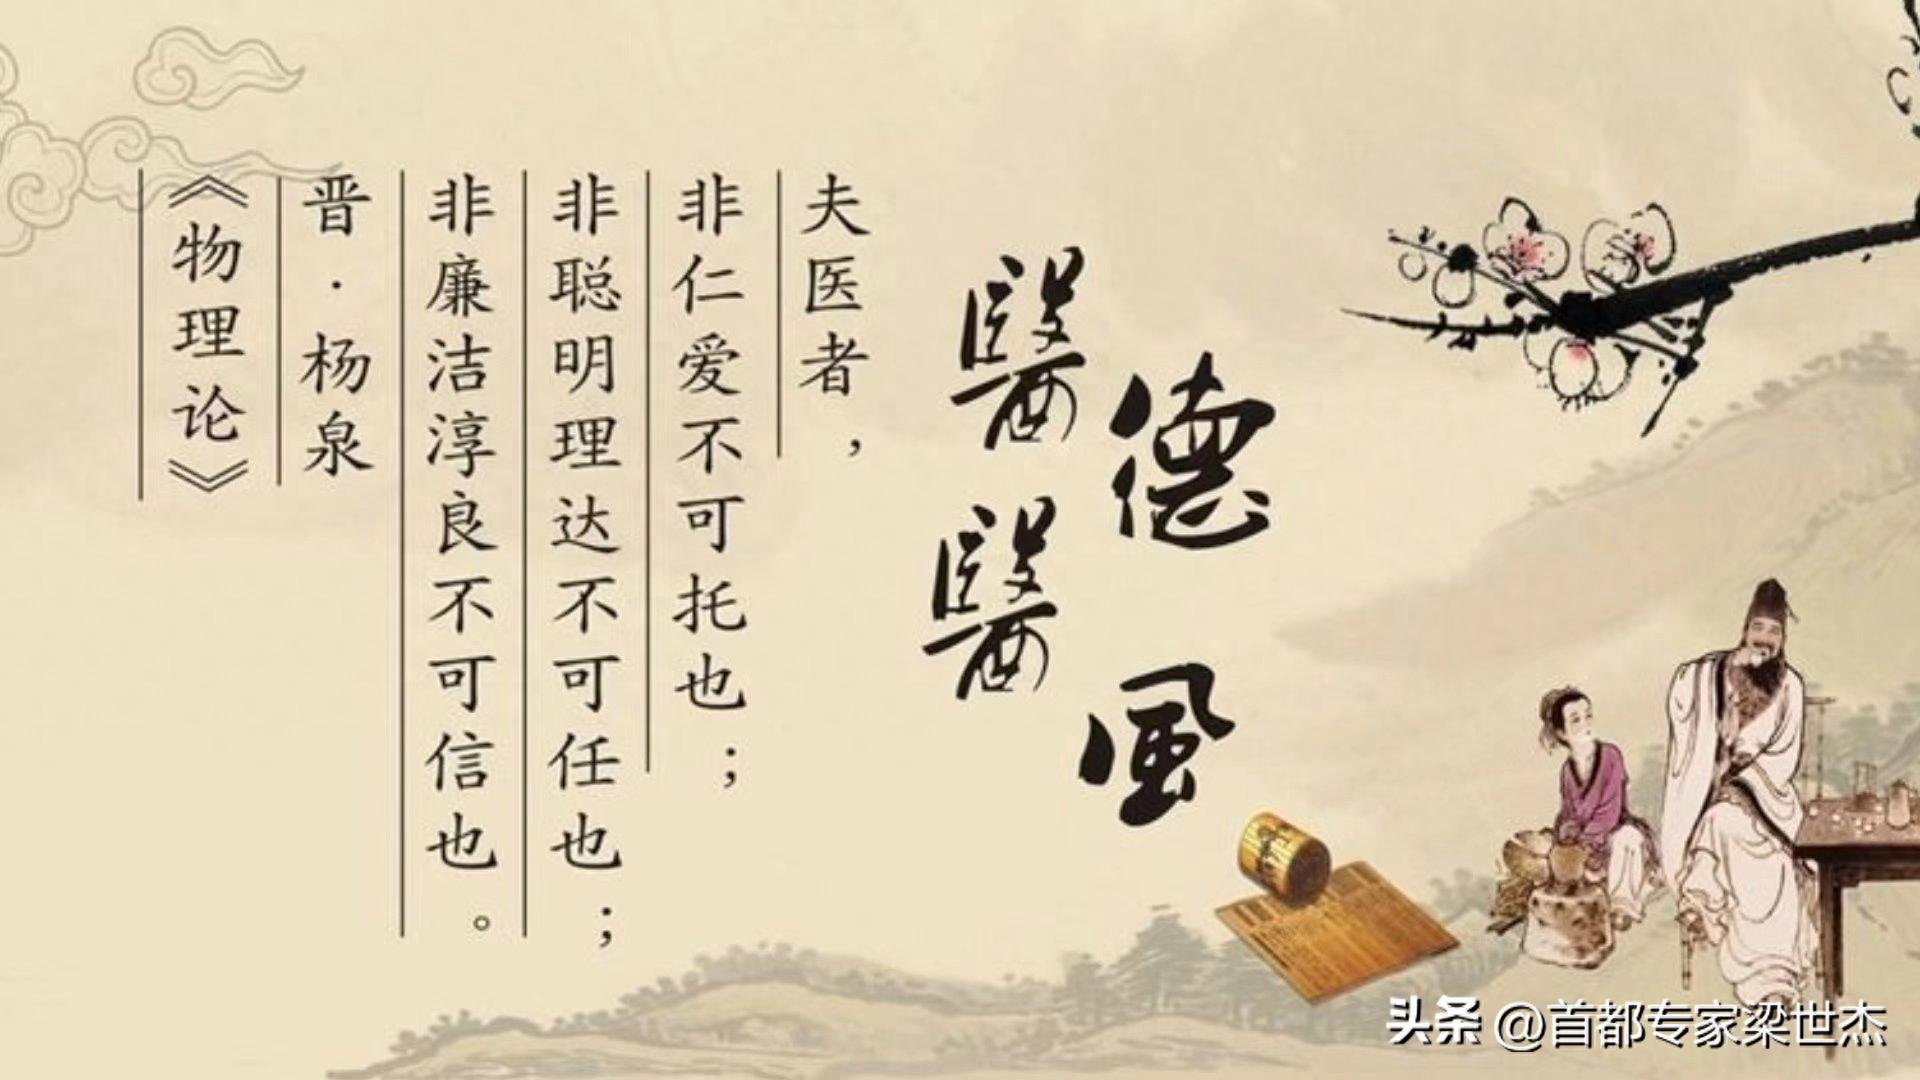 醫德
醫風
夫医者，
非仁爱不可托也；
非聪明理达不可任也；
非廉洁淳良不可信也。
晋·杨泉
《物理论》
头条 @首都专家梁世杰